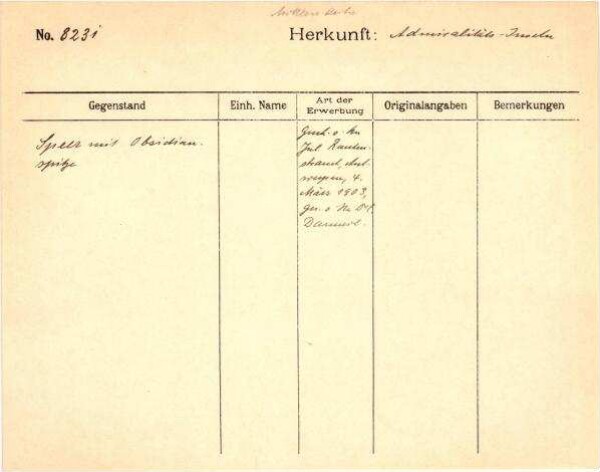 No. 823i
Herkunft: Admiralitäts-Inseln
Gegenstand
Einh. Name
Art der
Erwerbung
Originalangaben
Bemerkungen
Speer mit Obsidian-
spitze
Gesch. v. Hn
Jul. Rauten-
strauch, Ant-
werpen, 4.
März 1903,
ges. v. Hn